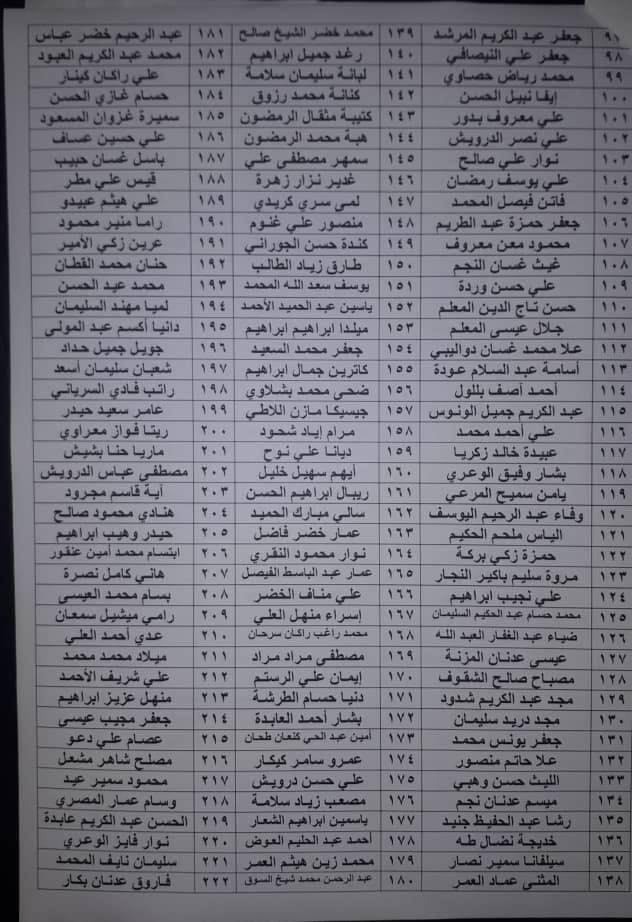 ٩٧ جعفر عبد الكريم المرشد
٩٨ جعفر علي النيصافي
٩٩ محمد رياض حصاوي
١٠٠ إيفا نبيل الحسن
١٠١ علي معروف بدور
١٠٢ علي نصر الدرويش
١٠٣ نوار علي صالح
١٠٤ علي يوسف رمضان
١٠٥ فاتن فيصل المحمد
١٠٦ جعفر حمزة عبد الطريم
١٠٧ محمود معن معروف
١٠٨ غيث غسان النجم
١٠٩ علي حسن وردة
١١٠ حسن تاج الدين المعلم
١١١ جلال عيسى المعلم
١١٢ علا محمد غسان دواليبي
١١٣ أسامة عبد السلام عودة
١١٤ أحمد آصف بللول
١١٥ عبد الكريم جميل الونوس
١١٦ علي أحمد محمد
١١٧ عبيدة خالد زكريا
١١٨ بشار وفيق الوعري
١١٩ يامن سميح المرعي
١٢٠ وفاء عبد الرحيم اليوسف
١٢١ الياس ملحم الحكيم
١٢٢ حمزة زكي بركة
١٢٣ مروة سليم باكير النجار
١٢٤ علي نجيب ابراهيم
١٢٥ محمد حسام عبد الحكيم السليمان
١٢٦ ضياء عبد الغفار العبد الله
١٢٧ عيسى عدنان المزنة
١٢٨ مصباح صالح الشقوف
١٢٩ مجد عبد الكريم شدود
١٣٠ مجد دريد سليمان
١٣١ جعفر يونس محمد
١٣٢ علا حاتم منصور
١٣٣ الليث حسن وهبي
١٣٤ ميسم عدنان نجم
١٣٥ رشا عبد الحفيظ جنيد
١٣٦ خديجة نضال طه
١٣٧ سيلفانا سمير نصار
١٣٨ المثنى عماد العمر
١٣٩ محمد خضر الشيخ صالح
١٤٠ رغد جميل ابراهيم
١٤١ لبانة سليمان سلامة
١٤٢ كنانة محمد رزوق
١٤٣ كتيبة مثقال الرمضون
١٤٤ هبة محمد الرمضون
١٤٥ سمهر مصطفى علي
١٤٦ غدير نزار زهرة
١٤٧ لمى سري كريدي
١٤٨ منصور علي غنوم
١٤٩ كندة حسن الجوراني
١٥٠ طارق زياد الطالب
١٥١ يوسف سعد الله المحمد
١٥٢ ياسين عبد الحميد الأحمد
١٥٣ ميلدا ابراهيم ابراهيم
١٥٤ جعفر محمد السعيد
١٥٥ كاترين جمال ابراهيم
١٥٦ ضحى محمد بشلاوي
١٥٧ جيسيكا مازن اللاطي
١٥٨ مرام إياد شحود
١٥٩ ديانا علي نوح
١٦٠ أيهم سهيل خليل
١٦١ ريبال ابراهيم الحسن
١٦٢ سالي مبارك الحميد
١٦٣ عمار خضر فاضل
١٦٤ نوار محمود النقري
١٦٥ عمار عبد الباسط الفيصل
١٦٦ علي مناف الخضر
١٦٧ إسراء منهل العلي
١٦٨ محمد راغب راكان سرحان
١٦٩ مصطفى مراد مراد
١٧٠ إيمان علي الرستم
١٧١ دنيا حسام الطرشة
١٧٢ بشار أحمد العابدة
١٧٣ أمين عبد الحي كنعان طحان
١٧٤ عمرو سامر كيكار
١٧٥ علي حسن درويش
١٧٦ مصعب زياد سلامة
١٧٧ ياسمين ابراهيم الشعار
١٧٨ أحمد عبد الحليم العوض
١٧٩ محمد زين هيثم العمر
١٨٠ عبد الرحمن محمد شيخ السوق
١٨١ عبد الرحيم خضر عباس
١٨٢ محمد عبد الكريم العبود
١٨٣ علي راكان كينار
١٨٤ حسام غازي الحسن
١٨٥ سميرة غزوان المسعود
١٨٦ علي حسين عساف
١٨٧ باسل غسان حبيب
١٨٨ قيس علي مطر
١٨٩ علي هيثم عبيدو
١٩٠ راما منير محمود
١٩١ عرين زكي الأمير
١٩٢ حنان محمد القطان
١٩٣ محمد عيد الحسن
١٩٤ لميا مهند السليمان
١٩٥ دانيا أكسم عبد المولى
١٩٦ جويل جميل حداد
١٩٧ شعبان سليمان أسعد
١٩٨ راتب فادي السرياني
١٩٩ عامر سعيد حيدر
٢٠٠ ريتا فواز معراوي
٢٠١ ماريا حنا بشيش
٢٠٢ مصطفى عباس الدرويش
٢٠٣ آية قاسم مجرود
٢٠٤ هنادي محمود صالح
٢٠٥ حيدر وهيب ابراهيم
٢٠٦ ابتسام محمد أمين عنقور
٢٠٧ هاني كامل نصرة
٢٠٨ بسام محمد العيسى
٢٠٩ رامي ميشيل سمعان
٢١٠ عدي أحمد العلي
٢١١ ميلاد محمد محمد
٢١٢ علي شريف الأحمد
٢١٣ منهل عزيز ابراهيم
٢١٤ جعفر مجيب عيسى
٢١٥ عصام علي دعو
٢١٦ مصلح شاهر مشعل
٢١٧ محمود سمير عيد
٢١٨ وسام عمار المصري
٢١٩ الحسن عبد الكريم عابدة
٢٢٠ نوار فايز الوعري
٢٢١ سليمان نايف المحمد
٢٢٢ فاروق عدنان بكار